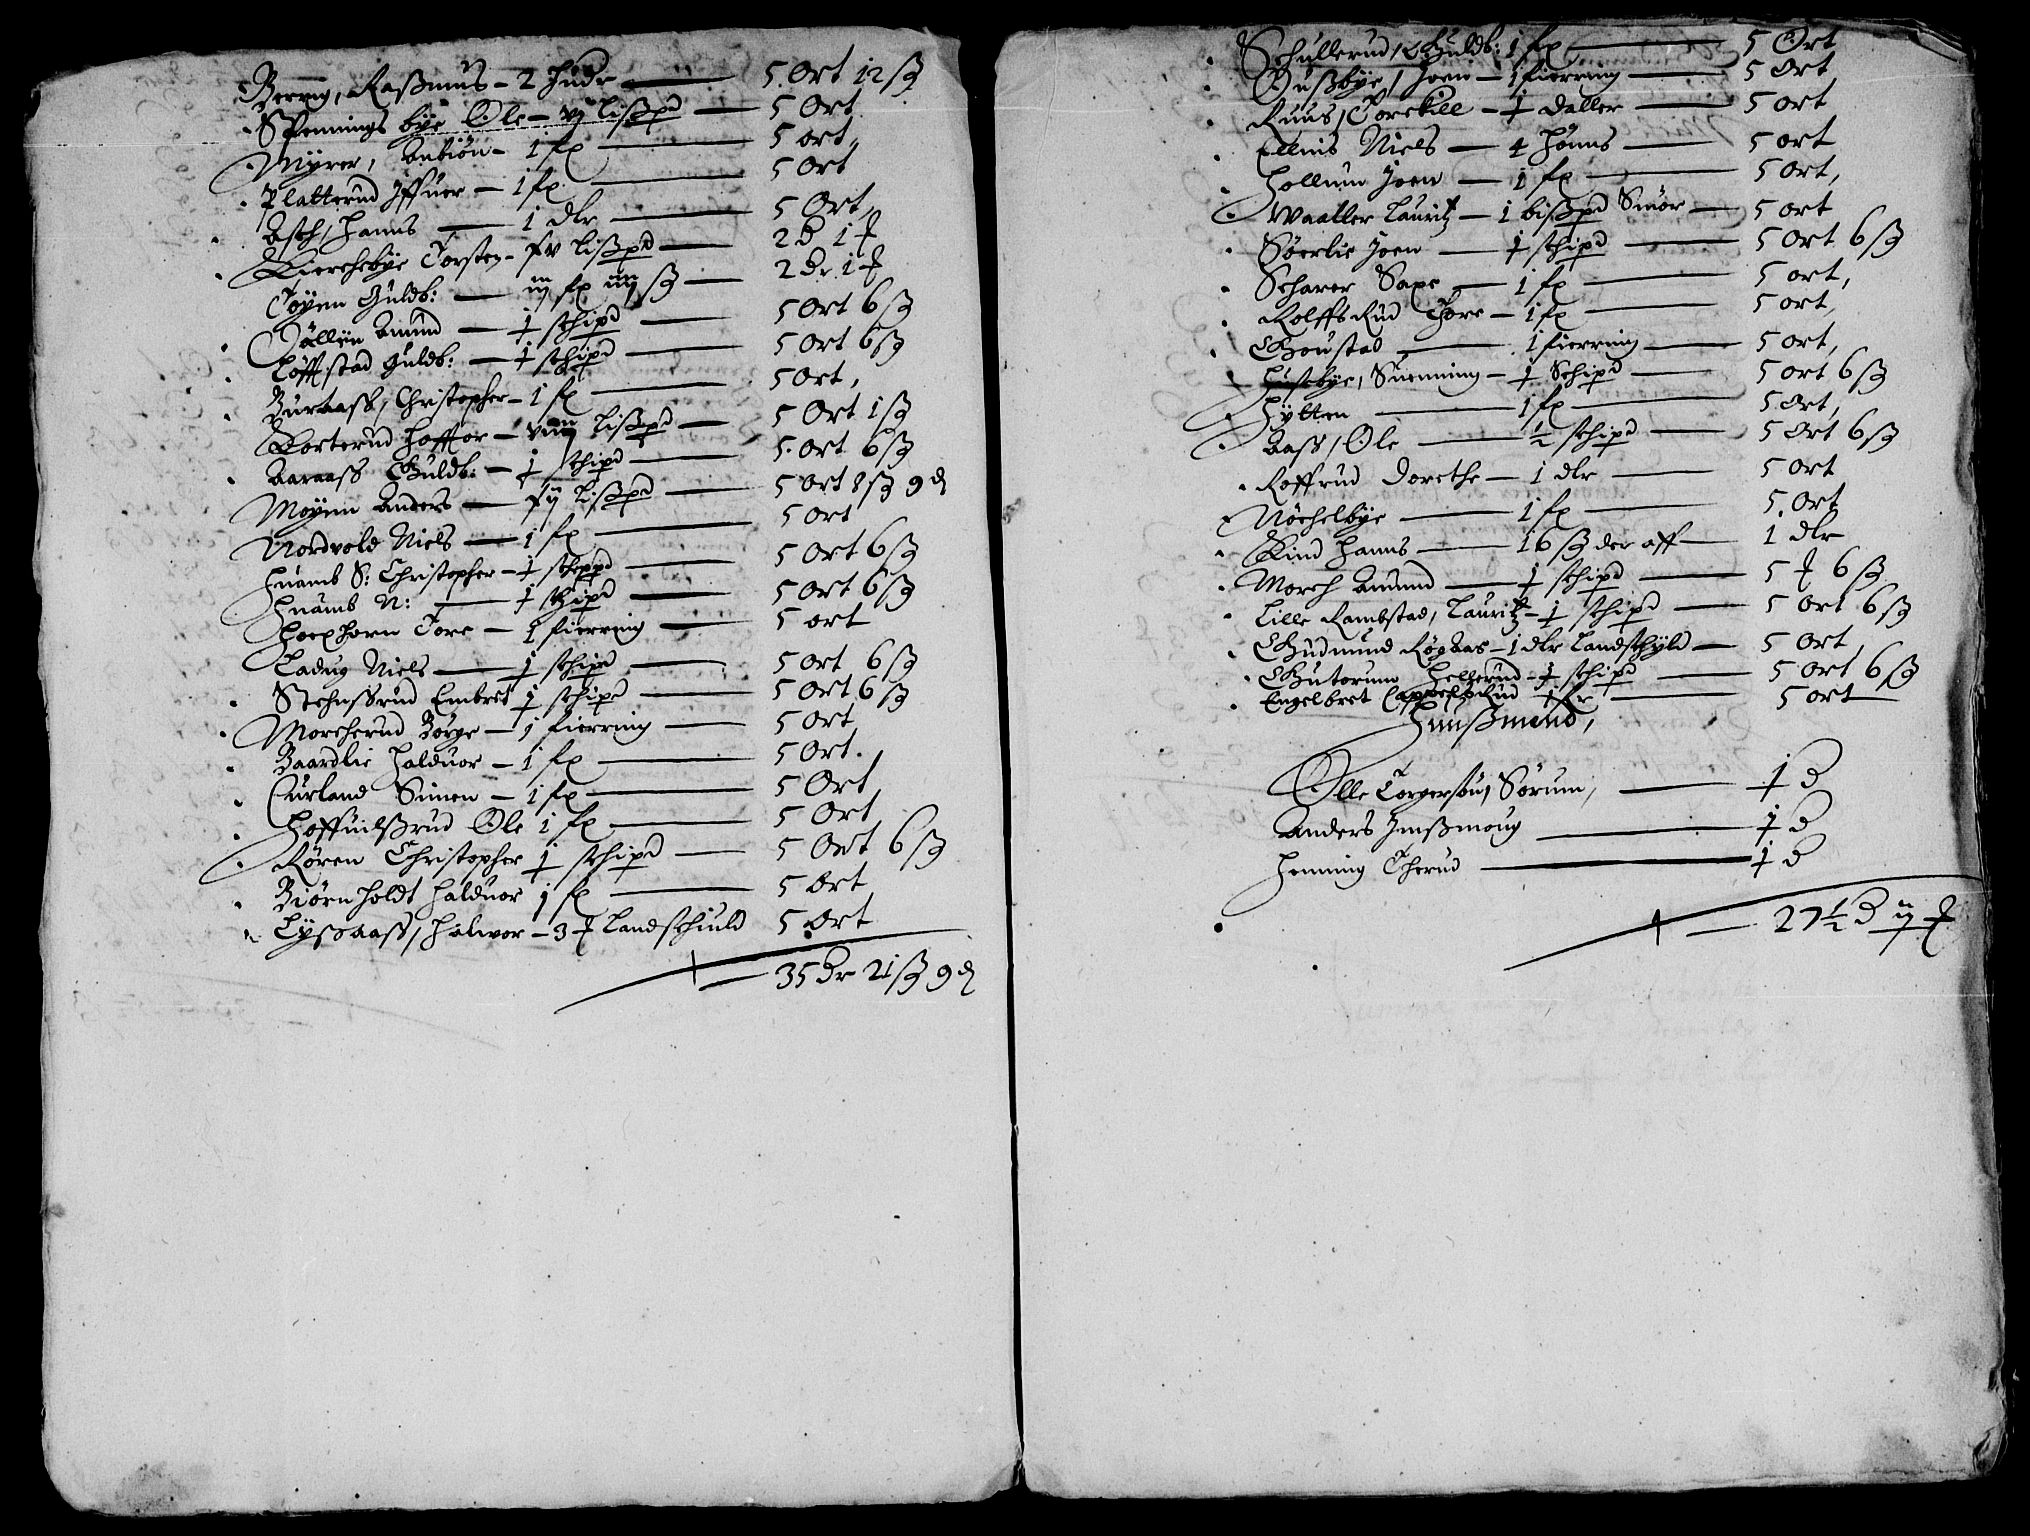 Berrig, Raßmus - 2 huder 5 Ort 12 ß
Spennings bye Ole - vj lißpd 5 Ort
Myrer, Anbiøn - 1 fx 5 ort,
Platterud Iffuer - 1 fx 5 Ort
Asch, Hanns 1 dlr 5 Ort,
Kierchebye Torsten - xv lißpd 2 D 1 ƒ
Tøyen Guldb: iij fx iiij ß 2 Dr. 1 ƒ
Dällen Amund ½ schipd 5 Ort 6 ß
Løffstad Guldb: ½ schipd 5 Ort 6 ß
Buraass, Christopher - 1 fx 5 Ort,
Korterud Hoffor - viiij lißpd 5 Ort 1 ß
Aaraass Guldb: ½ schipd 5 Ort 6 ß
Moynn Anders xij lißpd 5 Ort 8 ß 9 d
Nordvold Niels 1 fx 5 Ort
Huamb S: Christopher - ½ schippd 5 Ort 6 ß
Huamb N: ½ schipd 5 Ort 6 ß
Hoexhorn Tore - 1 fierring 5 ort
Ladug Niels ½ schipd 5 Ort 6 ß
Stehnssrud Embret ½ schipd 5 Ort 6 ß
Morcherud Børge - 1 fierring 5 Ort
Baardlie Halduor - 1 fx 5 Ort.
Curland Simen - 1 fx 5 Ort
Hoffuilßrud Ole 1 fx 5 Ort
Røren Christopher ½ schipd 5 Ort 6 ß
Biørnholdt Halduor 1 fx 5 Ort
Lyssaass, Halwor - 3 ƒ Landschuld 5 Ort
35 Dr 21 ß 9 d
Schullerud, Guldb: 1 fx 5 Ort
Bußbye, Joen - 1 fierring 5 Ort
Ruus, Torekill - ½ daller 5 ort
Ellnis Niels 4 Hønns 5 ort
Hollum Joen 1 fx 5 Ort,
Waaller Lauritz - 1 bißpd Smør 5 ort
Søerlie Joen ½ schipd 5 Ort 6 ß
Scharer Saxe 1 fx 5 ort,
Rolffsrud Thore - 1 fx 5 ort,
Goustad 1 fierring 5 ort,
Husebye, Suenning - ½ Schipd 5 ort 6 ß
Hytten 1 fx 5 Ort,
Aass, Ole ½ schipd 5 Ort 6 ß
Roffrud Dorethe - 1 dlr 5 ort
Nøchelbye 1 fx 5 Ort
Kind Hanns 16 ß der aff 1 dlr
Morch Amund ½ schipd 5 ƒ 6 ß
Lille Rambstad, Lauritz - ½ schipd 5 Ort 6 ß
Gudmund Røgaas - 1 dlr Landschyld 5 Ort
Gutorum Hellerud - ½ schipd 5 Ort 6 ß
Engelbret Cappelsrud 1 fx 5 ort
Huußmend,
Olle Torgersøn, Sørum, ½ D
Anders Imßmoug ½ D
Henning Therud ½ D
27 ½ D ij ƒ